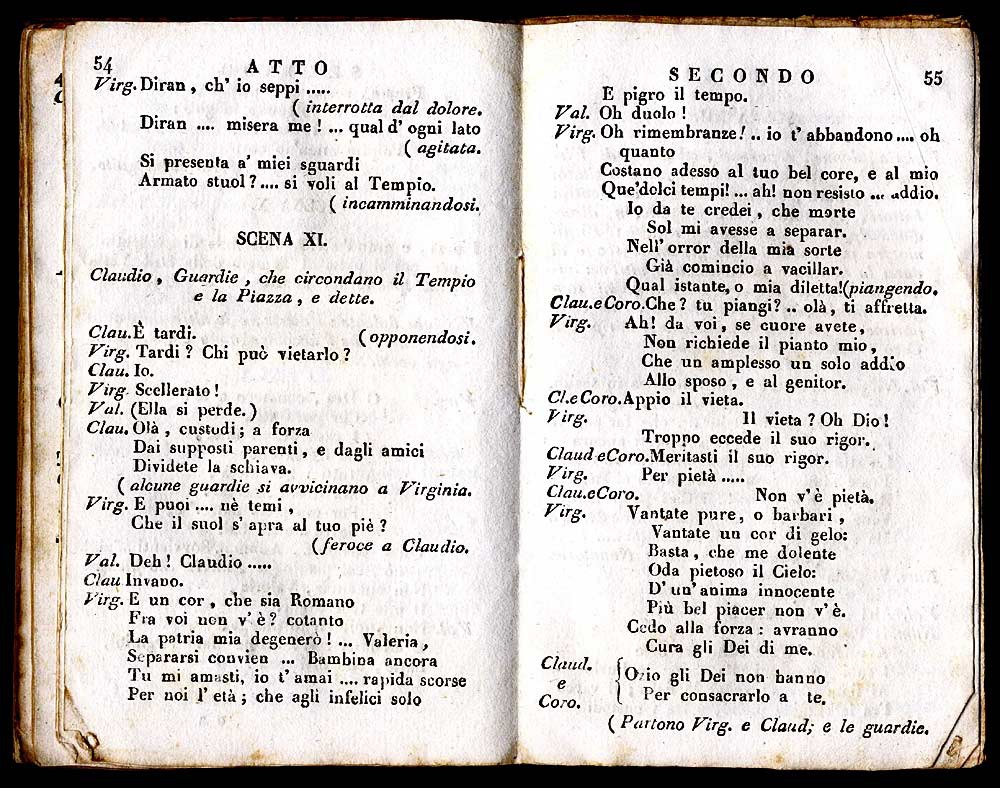 54
ATTO
Virg. Diran, ch' io seppi .....
( interrotta dal dolore.
Diran .... misera me! ... qual d' ogni lato
( agitata.
Si presenta a' miei sguardi
Armato stuol? .... si voli al Tempio.
( incamminandosi.
SCENA XI.
Claudio, Guardie, che circondano il Tempio
e la Piazza, e dette.
Clau. È tardi. (opponendosi.
Virg. Tardi? Chi può vietarlo?
Clau. Io.
Virg. Scellerato!
Val. (Ella si perde.)
Clau. Olà, custodi; a forza
Dai supposti parenti, e dagli amici
Dividete la schiava.
( alcune guardie si avvicinano a Virginia.
Virg. E puoi .... nè temi,
Che il suol s' apra al tuo piè?
(feroce a Claudio.
Val. Deh! Claudio .....
Clau Invano.
Virg. E un cor, che sia Romano
Fra voi non v' è? cotanto
La patria mia degenerò! ... Valeria,
Separarsi convien ... Bambina ancora
Tu mi amasti, io t' amai .... rapida scorse
Per noi l' età; che agli infelici solo
SECONDO
55
E pigro il tempo.
Val. Oh duolo!
Virg. Oh rimembranze! .. io t' abbandono .... oh
quanto
Costano adesso al tuo bel core, e al mio
Que' dolci tempi! ... ah! non resisto ... addio.
Io da te credei, che morte
Sol mi avesse a separar.
Nell' orror della mia sorte
Già comincio a vacillar.
Qual istante, o mia diletta! (piangendo.
Clau. e Coro. Che? tu piangi? .. olà, ti affretta.
Virg. Ah! da voi, se cuore avete,
Non richiede il pianto mio,
Che un amplesso un solo addio
Allo sposo, e al genitor.
Cl. e Coro. Appio il vieta.
Virg. Il vieta? Oh Dio!
Troppo eccede il suo rigor.
Claud e Coro. Meritasti il suo rigor.
Virg. Per pietà .....
Clau. e Coro. Non v' è pietà.
Virg. Vantate pure, o barbari,
Vantate un cor di gelo:
Basta, che me dolente
Oda pietoso il Cielo:
D' un' anima innocente
Più bel piacer non v' è.
Cedo alla forza: avranno
Cura gli Dei di me.
Claud. e Coro. { Ozio gli Dei non hanno
Per consacrarlo a te.
( Partono Virg. e Claud; e le guardie.